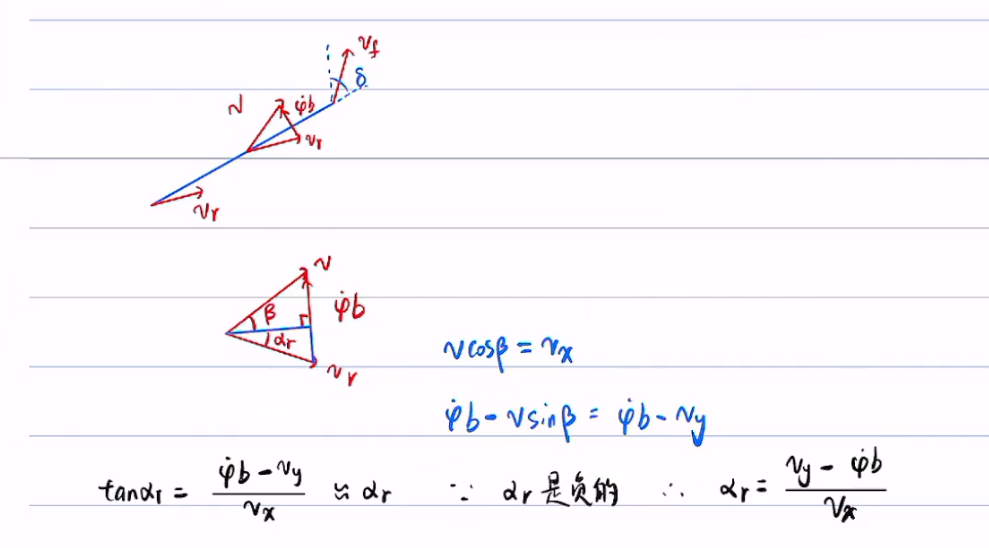 v_f
δ
v
φ̇b
v_r
v_r
v
β
φ̇b
α_r
v_r
vcosβ = v_x
φ̇b - vsinβ = φ̇b - v_y
tanα_r = (φ̇b - v_y)/v_x ≈ α_r ∵ α_r是负的 ∴ α_r = (v_y - φ̇b)/v_x